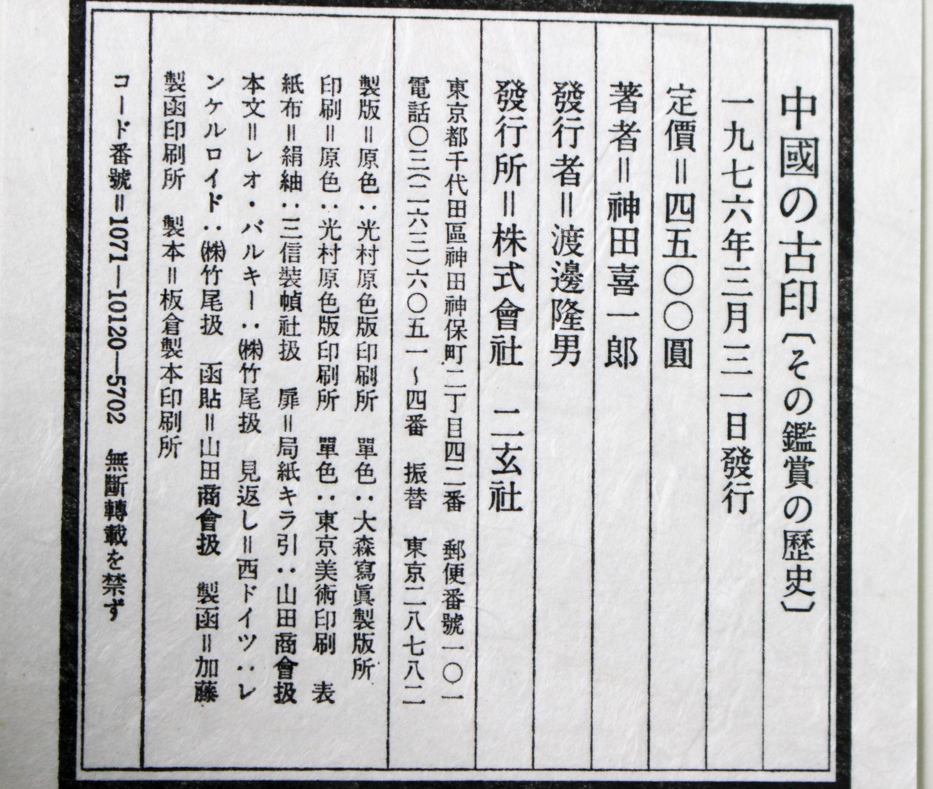 中國の古印〔その鑑賞の歷史〕
一九七六年三月三一日發行
定價＝四五〇〇圓
著者＝神田喜一郎
發行者＝渡邊隆男
發行所＝株式會社　二玄社
東京都千代田區神田神保町二丁目四二番　郵便番號一〇一
電話〇三(二六三)六〇五一〜四番　振替　東京二八七八二
製版＝原色：光村原色版印刷所　單色：大森寫眞製版所
印刷＝原色：光村原色版印刷所　單色：東京美術印刷　表
紙布＝絹紬：三信裝幀社扱　扉＝局紙キラ引：山田商會扱
本文＝レオ・バルキー：㈱竹尾扱　見返し＝西ドイツ：レ
ンケルロイド：㈱竹尾扱　函貼＝山田商會扱　製函＝加藤
製函印刷所　製本＝板倉製本印刷所
コード番號＝1071—10120—5702　無斷轉載を禁ず